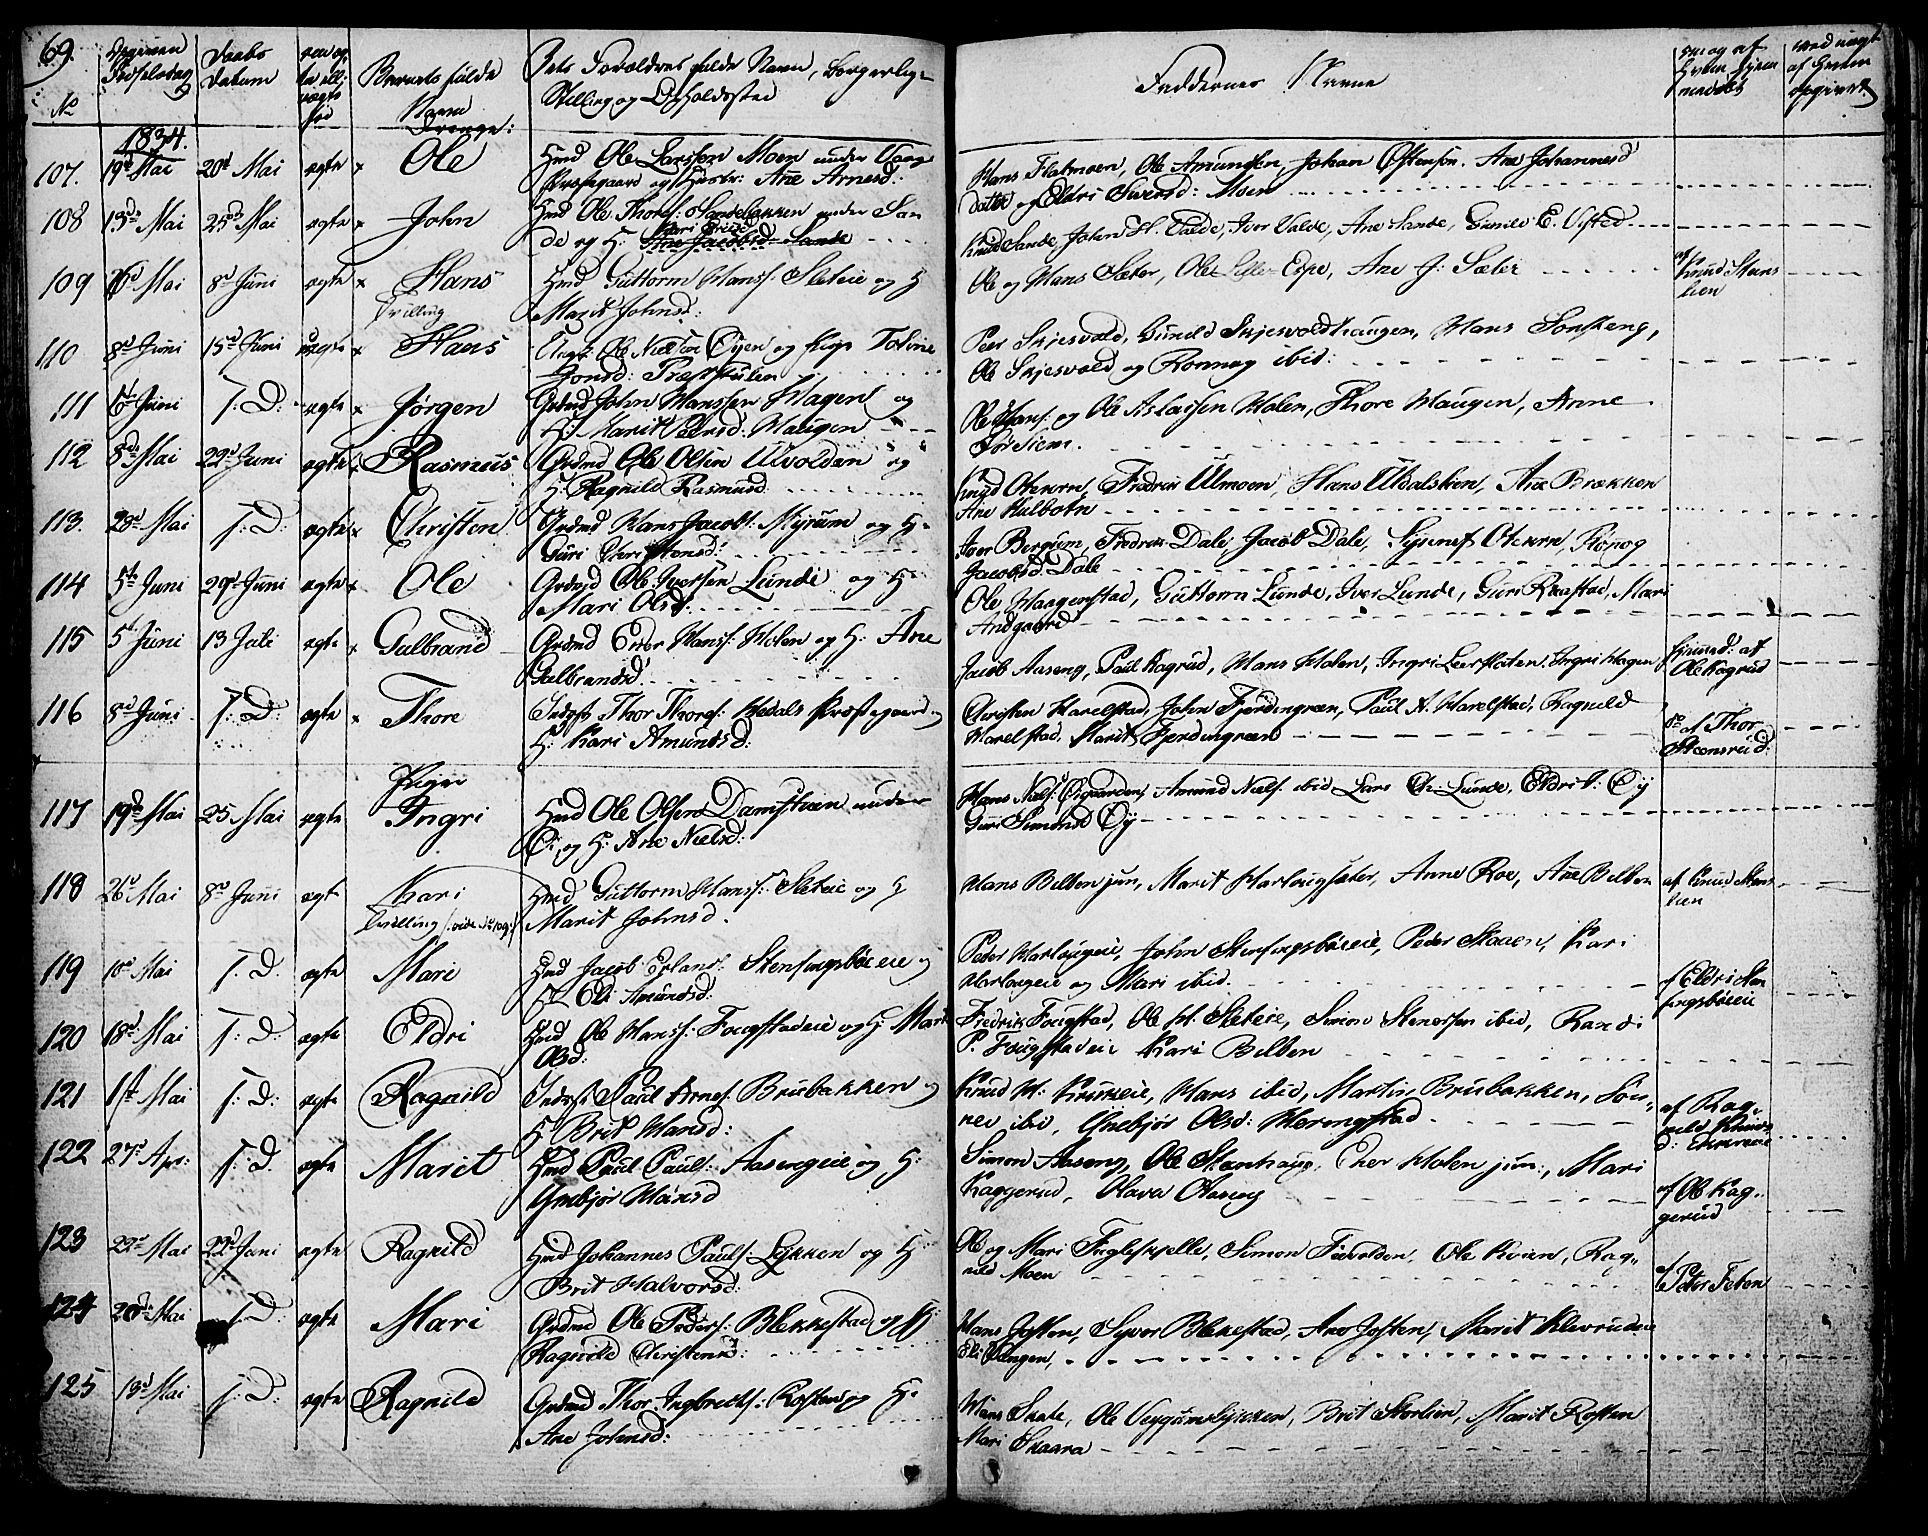 69.
No
Fødselsdag
Daabs Datum
Barnets fulde Navn
Dets Forældres fulde Navn, borgerlige Stilling og Opholdssted
Faddernes Navne
Drenge:
1834.
107. 19d Mai 20d Mai ægte Ole Hmd Ole Larssen Moen under Vaage
Præstegaard og Hustr: Ane Arnesd:
Hans Flatmoen, Ole Amundsen, Johan Østensøn. Ane Johannesd
datter og Eldri Siversd: Moen
108 13de Mai 25de Mai ægte John Hmd Ole Thores: Sandebakken under San
de og H: Ane Jacobsd Sande
Knud Sande, John H. Valde, Iver Valde, Ane Sande, Gunild E. Visted
109 26d Mai 8d Juni ægte Hans Hmd Guttorm Hanss: Sleteie og H
Tvilling Marit Johnsd:
Ole og Hans Sæter, Ole Espe, Ane J: Sæter
af Knud Stenslien
110 8d Juni 15d Juni uægte Hans Ungk: Ole Nielsen Øyen og Pige Toline
Jonsd: Præststulen
Peer Skjesvold, Gunild Skjesvoldhaugen, Hans Sonsteng,
Ole Skjesvold og Ronnog ibid:
111 6te Juni T: D: ægte Jørgen Grdmd John Hanssen Hagen og
H: Marit Peersd: Haugen
Ole Hans: og Ole Aslaksen Holen, Thore Haugen, Anne
112 8de Mai 22d Juni ægte Rasmus Grdmd Ole Olsen Ulvolden og
H: Ragnild Rasmusd
Knud Oteren, Fredrik Ulmoen, Hans Udalslien, Ane Brækken
Ane Kulboten
113. 28d Mai T: D: ægte Christen Grdmd Hans Jacobs: Myrum og H:
Guri Christensd:
Iver Bergum, Fredrik Dale, Jacob Dale, Oteren, Rønog
Jacobsd: Dale
114 5te Juni 29d Juni ægte Ole Grdmd Ole Iversen Lunde og H:
Mari Olsd:
Ole Haagenstad, Guttorm Lunde, Iver Lunde, Guri Raastad, Mari
Andgaard
115 5t Juni 13 Juli ægte Gulbrand Grdmd Ener Hanss: Holen og H: Ane
Gulbrandsd:
Jacob Aaseng, Paul Kagrud, Hans Holen, Ingri Leerflaten, Ingri Hagen
Hjemd: af
Ole Kagrud
116 8d Juni T: D: ægte Thore Indst: Thor Thores: Hedals Præstegaard og
H: Kari Amundsd:
Christen Harelstad, John Fjerdingreen, Paul A. Harelstad, Ragnild
Harelstad, Marit Fjerdingreen
do af Thor
Steensreid:
Piger
117 19d Mai 25 Mai ægte Ingri Hmd Ole Olsen Damstuen under
Øi, og H: Ane Nielsd:
Hans Niels: Øigaarden, Amund Niels: ibid Lars Ch: Lunde, Eldri L: Øy
Guri Simonsd Øy
118 26d Mai 8d Juni ægt Kari Hmd Guttorm Hanss: Sleteie og H
Tvilling (vide No 109) Marit Johnsd.
Hans Bilben jun, Marit Harlaugsæter, Anne Roe, Ane Bilben
af Knud Stens
lien
119 10d Mai T. D: ægte Mari Hmd Jacob Erlans: Stensingsbøeie og
H Eli Amundsd:
Peder Harlougeie, John Stensingsbøieie, Peder Skaaen, Kari
Harlougeie og Mari ibid.
af Eldri Sten
singsbøieie
120 18d Mai T: D: ægte Eldri Hmd Ole Hanss: Fougstadeie og H Marit
Olsd:
Fredrik Fougstad, Ole H: Sleteie, Simon Stenersen ibid, Randi
P. Fougstadeie Kari Bilben
121 1ste Mai T: D: ægte Ragnild Indst: Paul Arnes: Brubakken og
H Brit Hansd:
Knud H: Krukeie, Hans ibid, Martin Brubakken, Søn
nei ibid, Gnebjør Olsd: Heringstad
af Rag
nild Knuds
d:
122 27d Apr: T: D. ægte Marit Hmd Paul Pauls: Aasengeie og H:
Gnebjør Hansd
Simon Aaseng, Ole Stenhaug, Ener Holen jun., Mari
Kaggerud, Olava Aaseng
af Ole Kag
gerud
123 29d Mai 22d Juni ægte Ragnild Hmd Johannes Pauls: Løkken og H:
Brit Halvorsd:
Ole og Mari Fugleskjelle, Simon Ole Kvien, Rag
nild Moen
af
Peter Feten
124 20de Mai T: D: ægte Mari Grdmd Ole Peders: Blekkestad og H
Ragnild Christensd:
Hans Josten, Syver Blekestad, Ane Josten, Marit Kleivrudeie
Eli Vangen,
125 13d Mai T: D: ægte Ragnild Grdmd Thor Ingbreths: Rosten og H:
Ane Johnsd:
Hans Skale, Ole Veggumsløkken, Brit Storlien, Marit Rosten
Mari Skaara